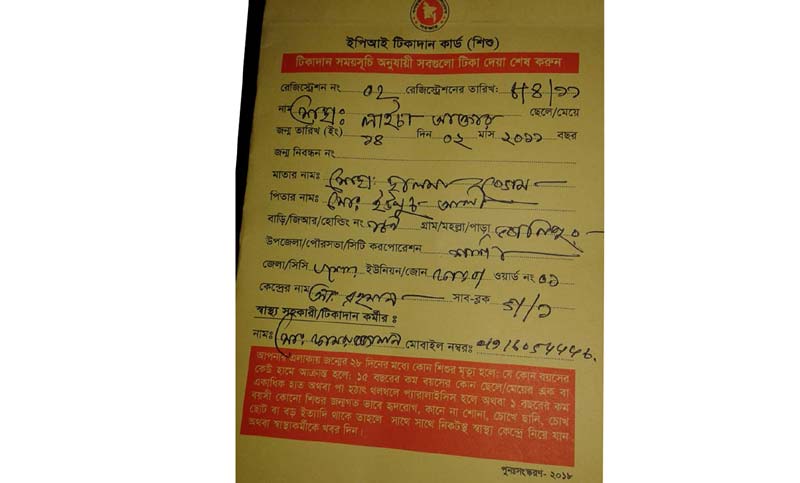 ইপিআই টিকাদান কার্ড (শিশু)
টিকাদান সময়সূচি অনুযায়ী সবগুলো টিকা দেয়া শেষ করুন
রেজিস্ট্রেশন নং ০২ রেজিস্ট্রেশনের তারিখ: ৮/৪/১১
নাম মোছা: লাইচা আক্তার ছেলে/মেয়ে
জন্ম তারিখ (ইং) ১৪ দিন ০২ মাস ২০১১ বছর
জন্ম নিবন্ধন নং
মাতার নামঃ মোছা: হালিমা বেগম
পিতার নামঃ মোঃ ইউসুফ আলী
বাড়ি/জিআর/হোল্ডিং নং গ্রাম/মহল্লা/পাড়া
উপজেলা/পৌরসভা/সিটি করপোরেশন শার্শা
জেলা/সিসি যশোর ইউনিয়ন/জোন ওয়ার্ড নং ০১
কেন্দ্রের নাম মোঃ রহমান সাব-ব্লক
স্বাস্থ্য সহকারী/টিকাদান কর্মীর ঃ
নামঃ মোঃ মোবাইল নম্বরঃ
আপনার এলাকায় জন্মের ২৮ দিনের মধ্যে কোন শিশুর মৃত্যু হলে; যে কোন বয়সের
কেউ হামে আক্রান্ত হলে; ১৫ বছরের কম বয়সের কোন ছেলে/মেয়ের এক বা
একাধিক হাত অথবা পা হঠাৎ থলথলে প্যারালাইসিস হলে অথবা ১ বছরের কম
বয়সী কোনো শিশুর জন্মগত ভাবে হৃদরোগ, কানে না শোনা, চোখে ছানি, চোখ
ছোট বা বড় ইত্যাদি থাকে তাহলে সাথে সাথে নিকটস্থ স্বাস্থ্য কেন্দ্রে নিয়ে যান
অথবা স্বাস্থ্যকর্মীকে খবর দিন।
পুনঃসংস্করণ- ২০১৮